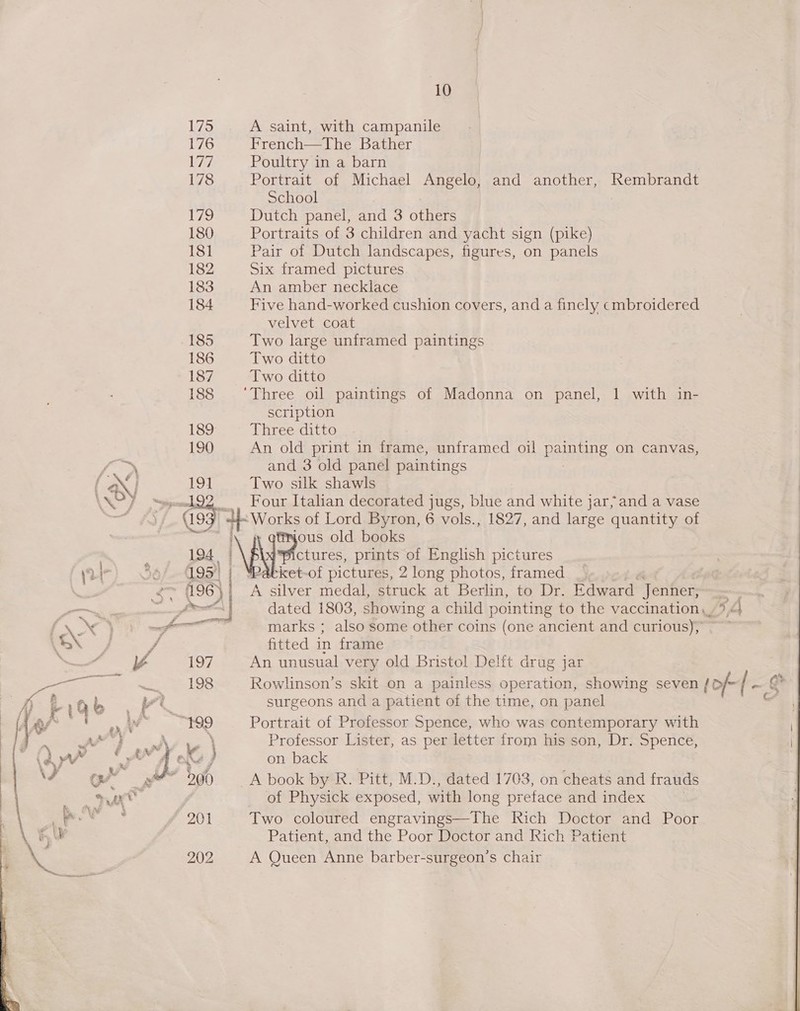 10
175 A saint, with campanile
176 French—The Bather
177 Poultry in a barn
178 Portrait of Michael Angelo, and another, Rembrandt
School
179 Dutch panel, and 3 others
180 Portraits of 3 children and yacht sign (pike)
181 Pair of Dutch landscapes, figures, on panels
182 Six framed pictures
183 An amber necklace
184 Five hand-worked cushion covers, and a finely embroidered
velvet coat
185 Two large unframed paintings
186 Two ditto
187 Two ditto
188 Three oil paintings of Madonna on panel, 1 with in-
scription
189 Three ditto
190 An old print in frame, unframed oil painting on canvas,
and 3 old panel paintings
191 Two silk shawls
192 Four Italian decorated jugs, blue and white jar, and a vase
193 Works of Lord Byron, 6 vols., 1827, and large quantity of
old books
194 pictures, prints of English pictures
195 Packet of pictures, 2 long photos, framed
196 A silver medal, struck at Berlin, to Dr. Edward Jenner,
dated 1803, showing a child pointing to the vaccination
marks ; also some other coins (one ancient and curious),
fitted in frame
197 An unusual very old Bristol Delft drug jar
198 Rowlinson's skit on a painless operation, showing seven
surgeons and a patient of the time, on panel
199 Portrait of Professor Spence, who was contemporary with
Professor Lister, as per letter from his son, Dr. Spence,
on back
200 A book by R. Pitt, M.D., dated 1703, on cheats and frauds
of Physick exposed, with long preface and index
201 Two coloured engravings—The Rich Doctor and Poor
Patient, and the Poor Doctor and Rich Patient
202 A Queen Anne barber-surgeon's chair